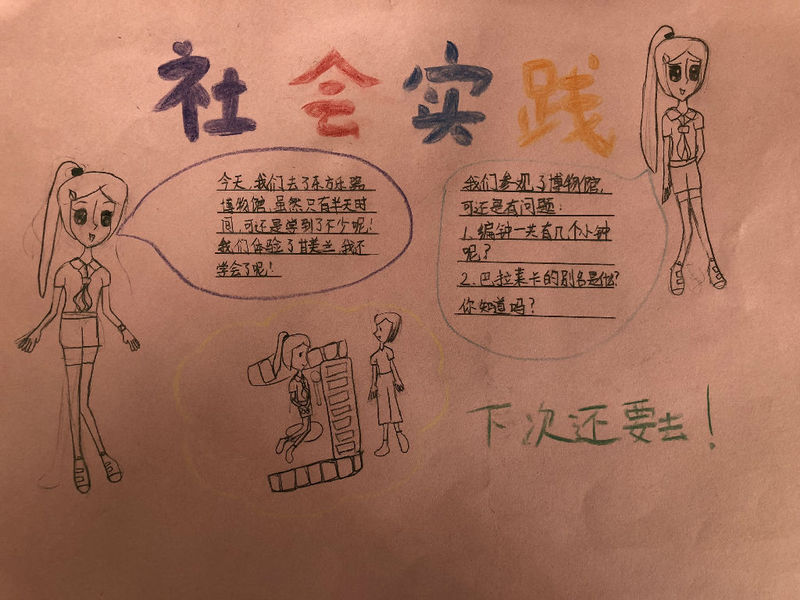 社会实践
今天,我们去了东方乐器
博物馆,虽然只有半天时
间,可还是学到了不少呢!
我们体验了甘美兰,我还
学会了呢!
我们参观了博物馆,
可还是有问题:
1.编钟一共有几个小钟
呢?
2.巴拉莱卡的别名是什么?
你知道吗?
下次还要去!